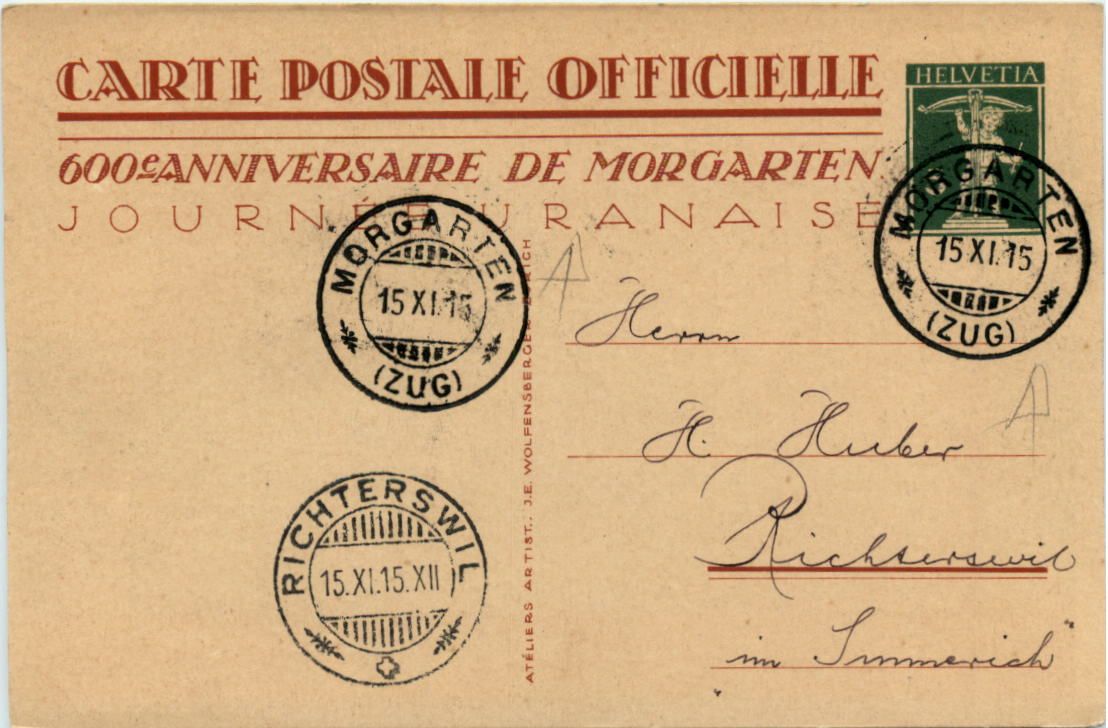 CARTE POSTALE OFFICIELLE
600e ANNIVERSAIRE DE MORGARTEN
JOURNÉE URANAISE
HELVETIA
MORGARTEN
15 XI. 15
(ZUG)
MORGARTEN
15 XI. 15
(ZUG)
RICHTERSWIL
15. XI. 15. XII
ATÉLIERS ARTIST., J.E. WOLFENSBERGER
Herrn
H. Huber
Richterswil
im